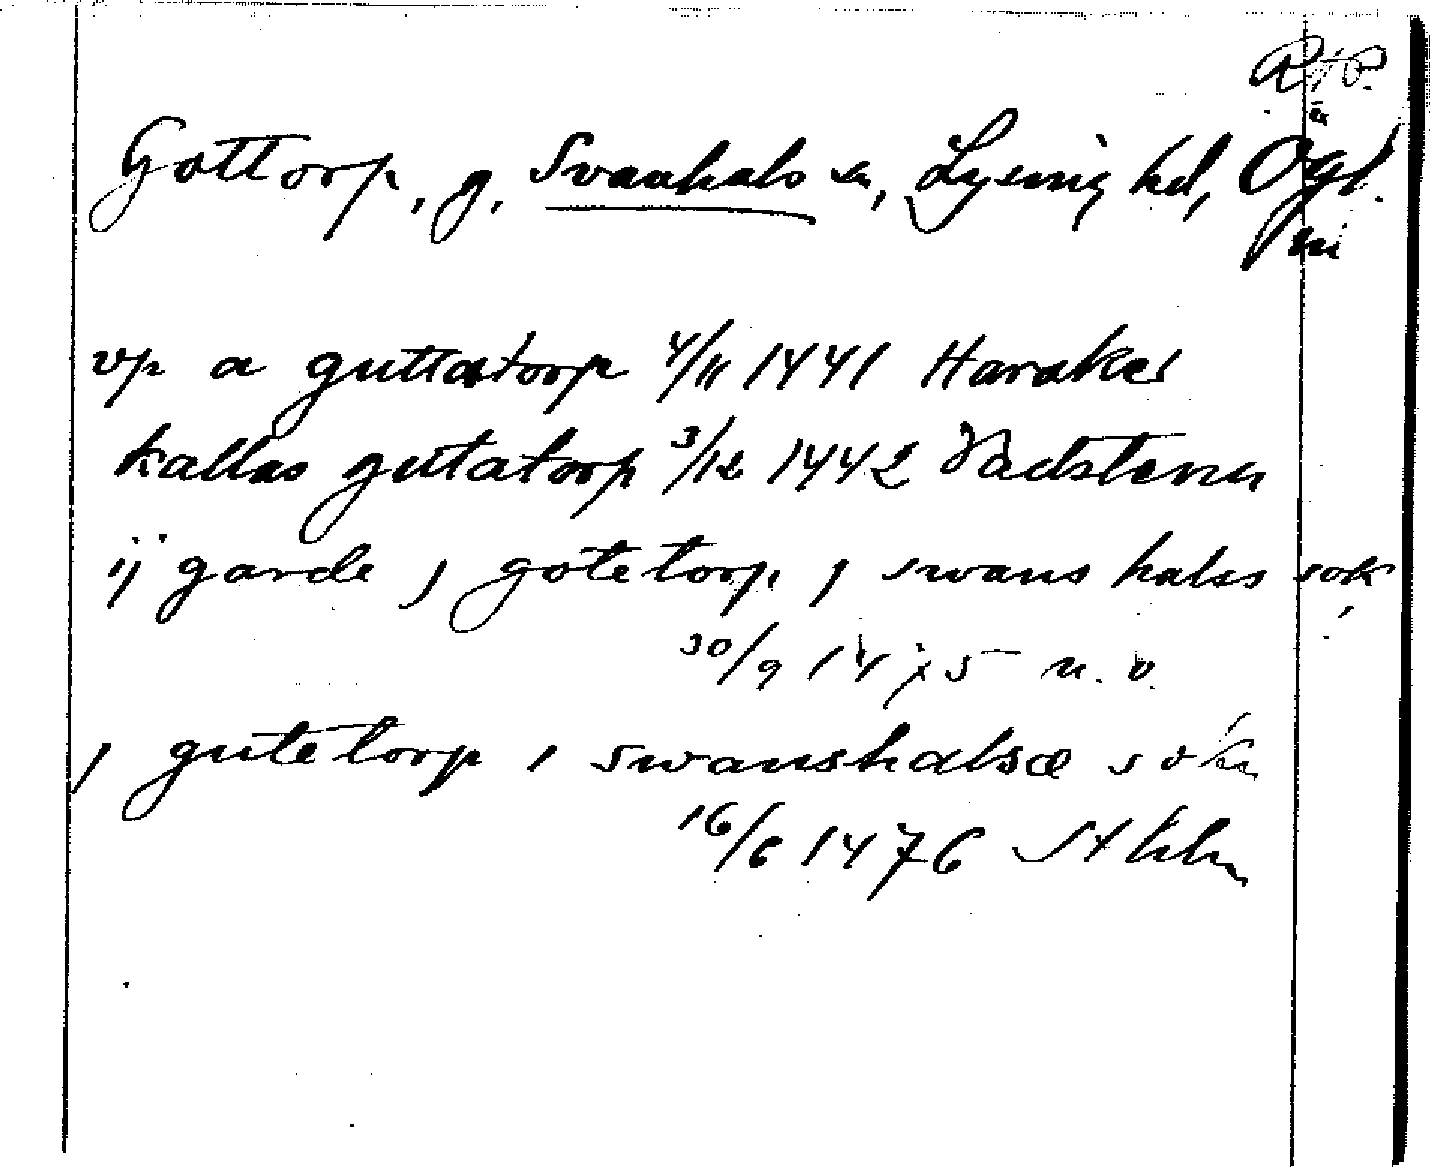 Gottorp, g, Svanhals sn, Lysing hd, Ögl.
vp a guttatorp 4/11 1441 Haraker
kallas gutatorp 3/12 1442 Vadstena
ij garde j gotetorp j swans hals sok
30/9 1475 u. o.
j gutetorp i swanshalsæ sokn
16/6 1476 Sthlm